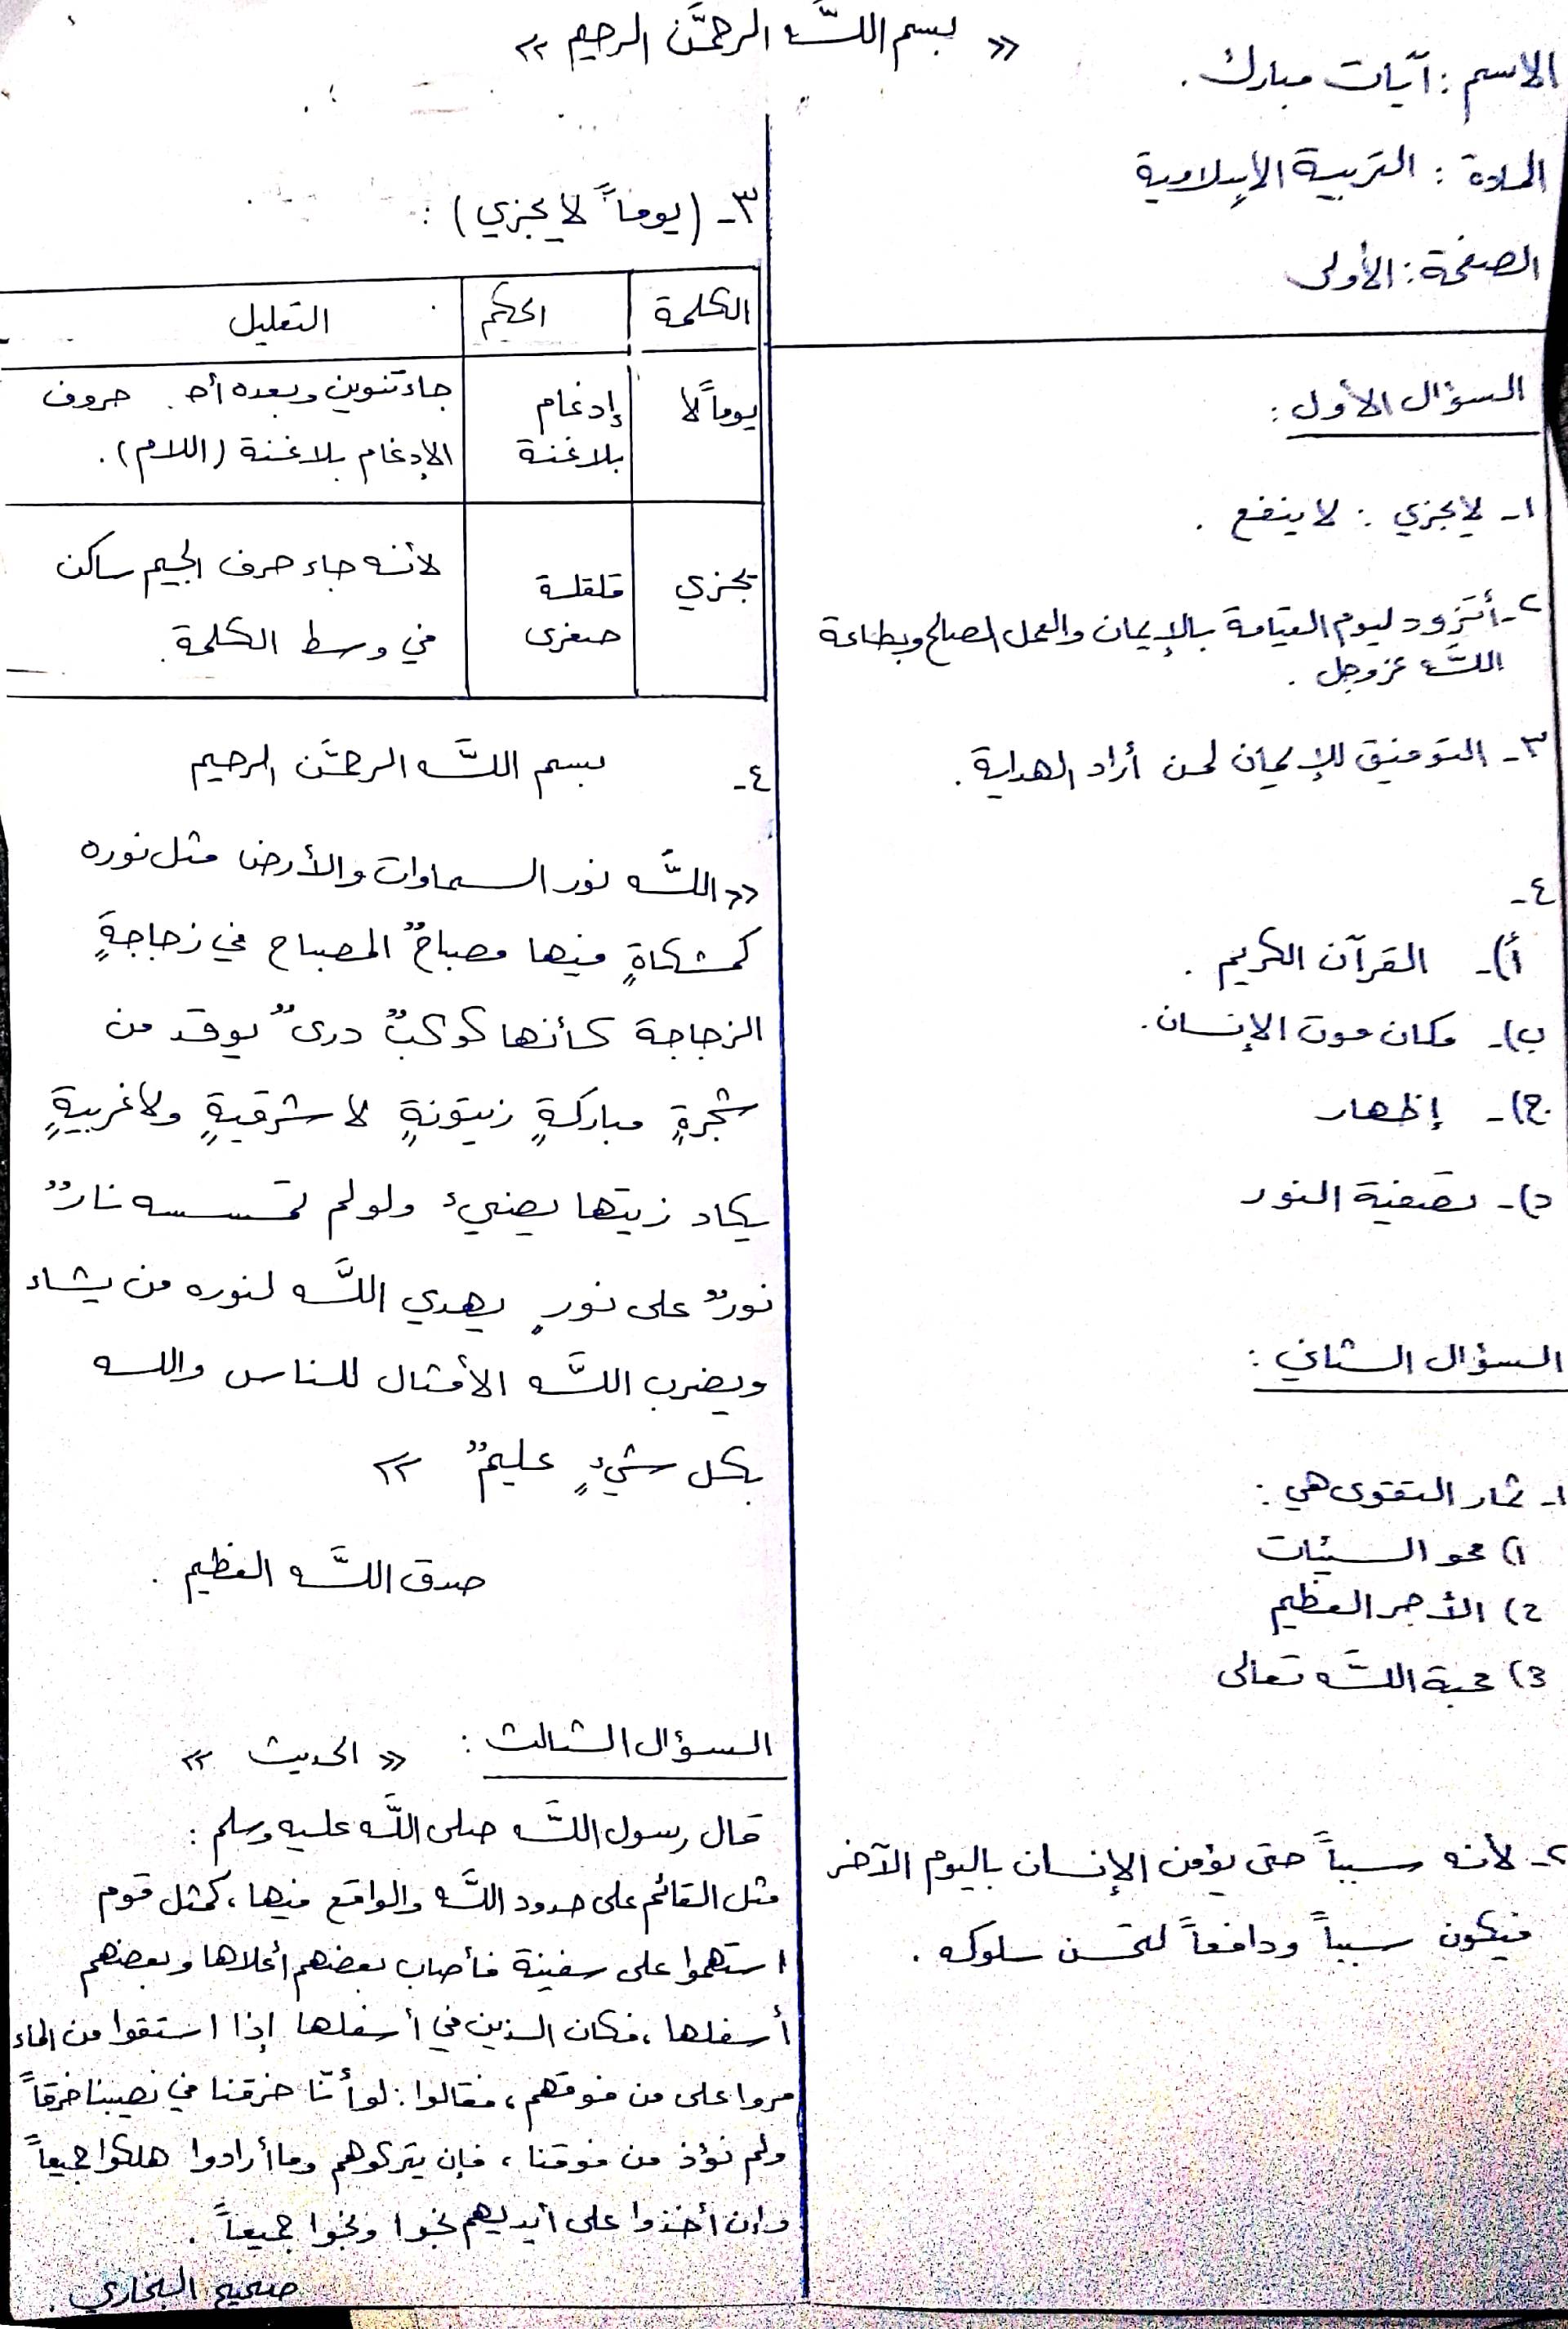 « بسم اللَّه الرحمَن الرحيم »
الاسم : آيات مبارك .
المادة : التربية الإسلامية
الصفحة : الأولى
السؤال الأول :
١- لا يجزي : لا ينفع .
٢- أتزود ليوم القيامة بالإيمان والعمل الصالح وبطاعة
اللَّه عز وجل .
٣- التوفيق للإيمان لمن أراد الهداية .
٤-
أ)- القرآن الكريم .
ب)- مكان موت الإنسان .
ج)- إظهار
د)- تصفية النور
السؤال الثاني :
١- ثمار التقوى هي :
١) محو السيئات
٢) الأجر العظيم
3) محبة اللَّه تعالى
٢- لأنه سبباً حتى يؤمن الإنسان باليوم الآخر
فيكون سبباً ودافعاً لتحسن سلوكه .
٣- (يوماً لا يجزي) :
الكلمة | الحكم | التعليل
يوماً لا | إدغام بلا غنة | جاء تنوين وبعده أحد حروف
الإدغام بلا غنة (اللام) .
يجزي | قلقلة صغرى | لأنه جاء حرف الجيم ساكن
في وسط الكلمة .
٤- بسم اللَّه الرحمَن الرحيم
« اللَّه نور السماوات والأرض مثل نوره
كمشكاةٍ فيها مصباحٌ المصباح في زجاجةٍ
الزجاجة كأنها كوكبٌ درىٌ يوقد من
شجرةٍ مباركةٍ زيتونةٍ لا شرقيةٍ ولا غربيةٍ
يكاد زيتها يضيء ولو لم تمسسه نارٌ
نورٌ على نورٍ يهدي اللَّه لنوره من يشاء
ويضرب اللَّه الأمثال للناس والله
بكل شيءٍ عليمٌ »
صدق اللَّه العظيم .
السؤال الثالث : « الحديث »
قال رسول اللَّه صلى اللَّه عليه وسلم :
مثل القائم على حدود اللَّه والواقع فيها ، كمثل قوم
استهموا على سفينة فأصاب بعضهم أعلاها وبعضهم
أسفلها ، فكان الذين في أسفلها إذا استقوا من الماء
مروا على من فوقهم ، فقالوا : لو أنّا خرقنا في نصيبنا خرقاً
ولم نؤذ من فوقنا ، فإن يتركوهم وما أرادوا هلكوا جميعاً
وإن أخذوا على أيديهم نجوا ونجوا جميعاً .
صحيح البخاري .